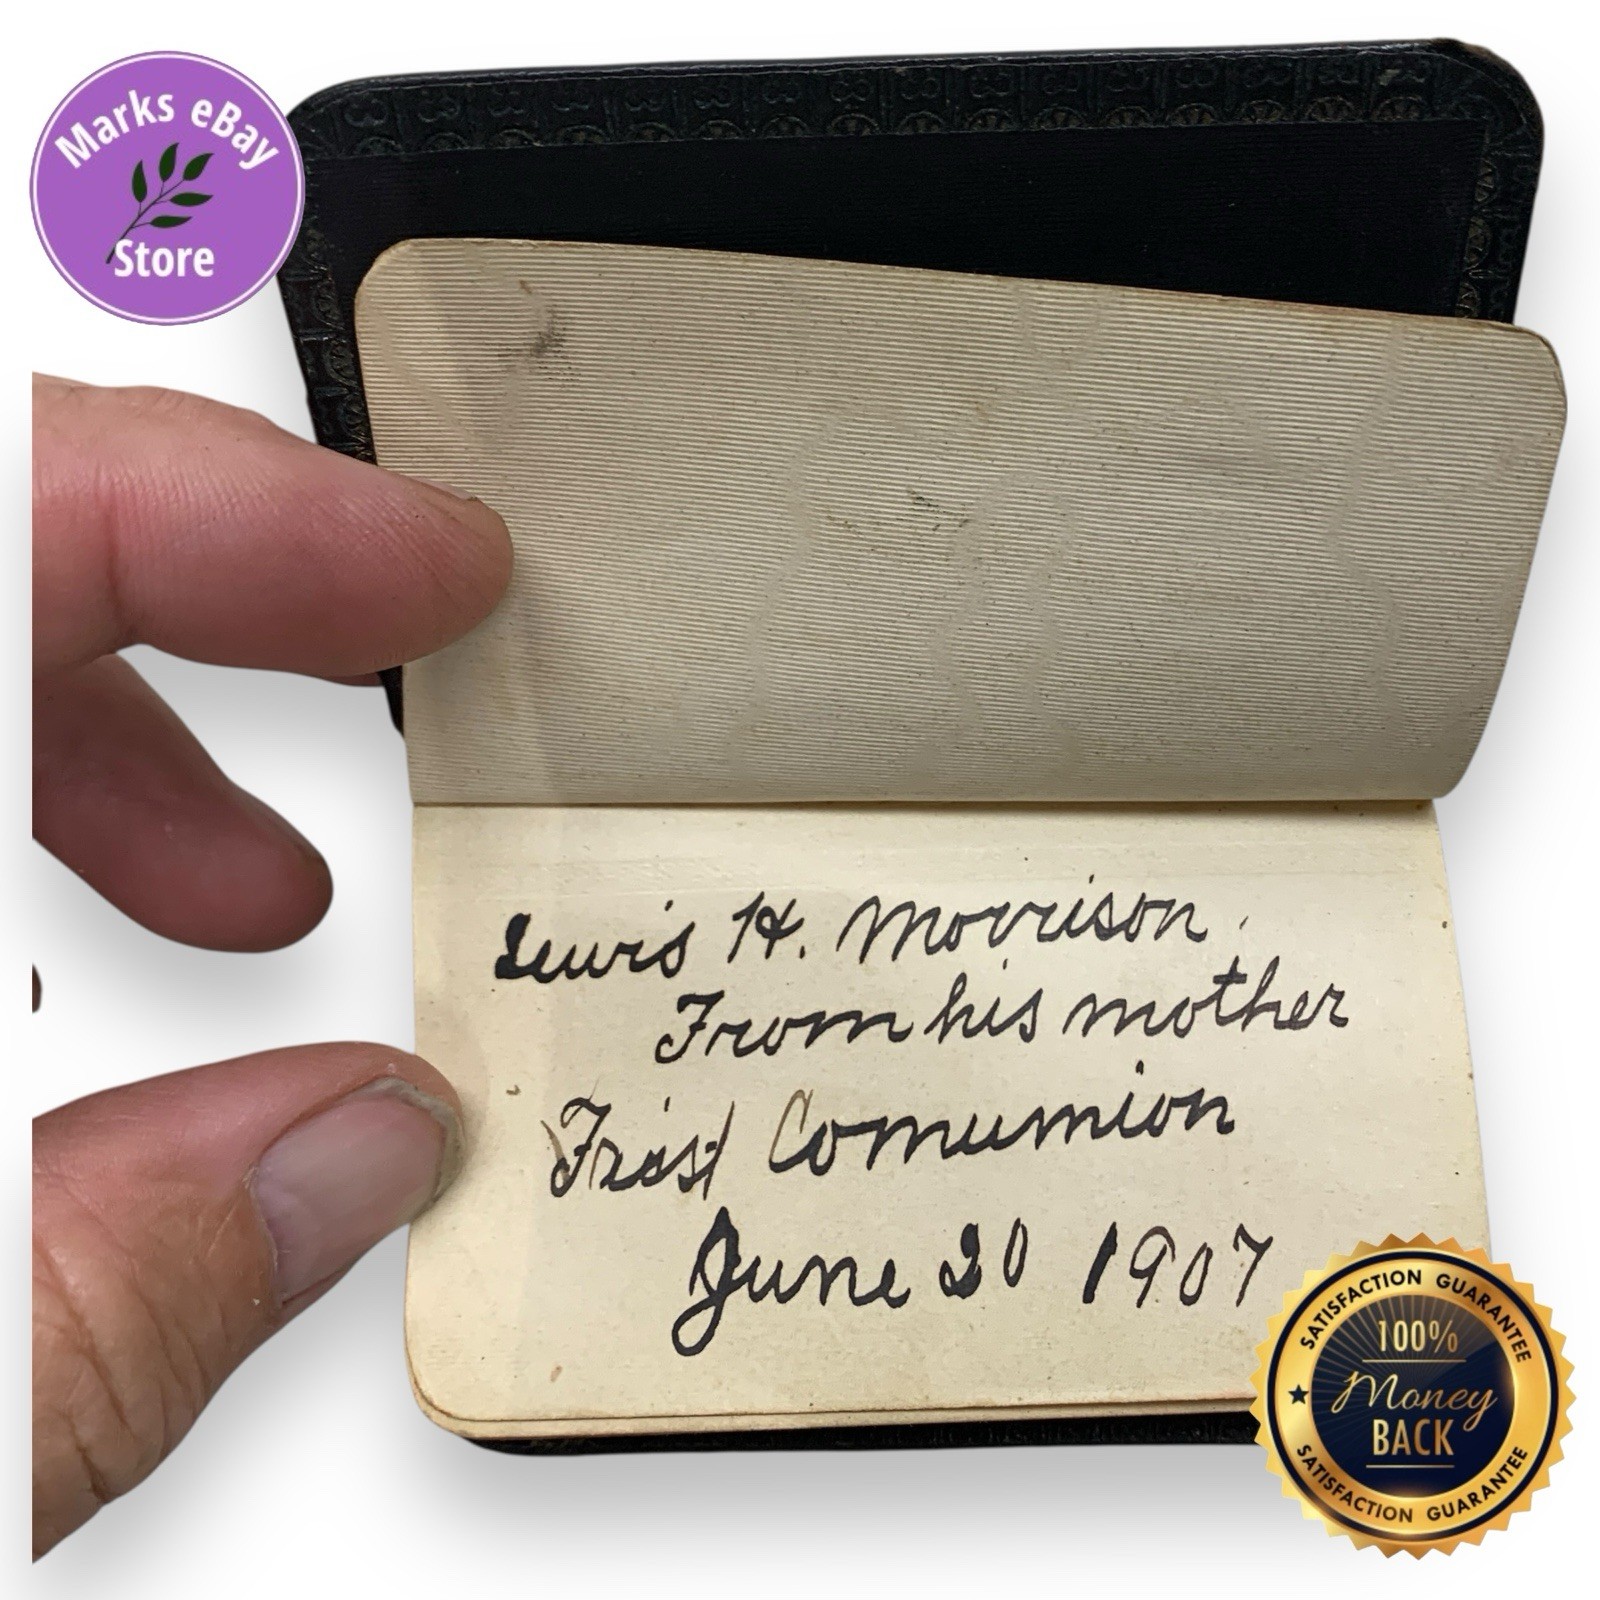 Marks eBay
Store
Lewis H. Morrison.
From his mother
First Comumion
June 20 1907
SATISFACTION GUARANTEE
100%
Money
BACK
SATISFACTION GUARANTEE